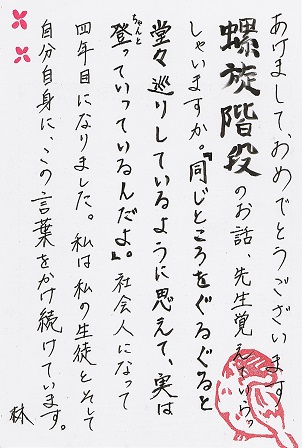 あけまして、おめでとうございます。
螺旋階段のお話、先生覚えていらっ
しゃいますか。『同じところをぐるぐると
堂々巡りしているように思えて、実は
ちゃんと
登っていっているんだよ。』社会人になって
四年目になりました。私は私の生徒とそして
自分自身に、この言葉をかけ続けています。
林